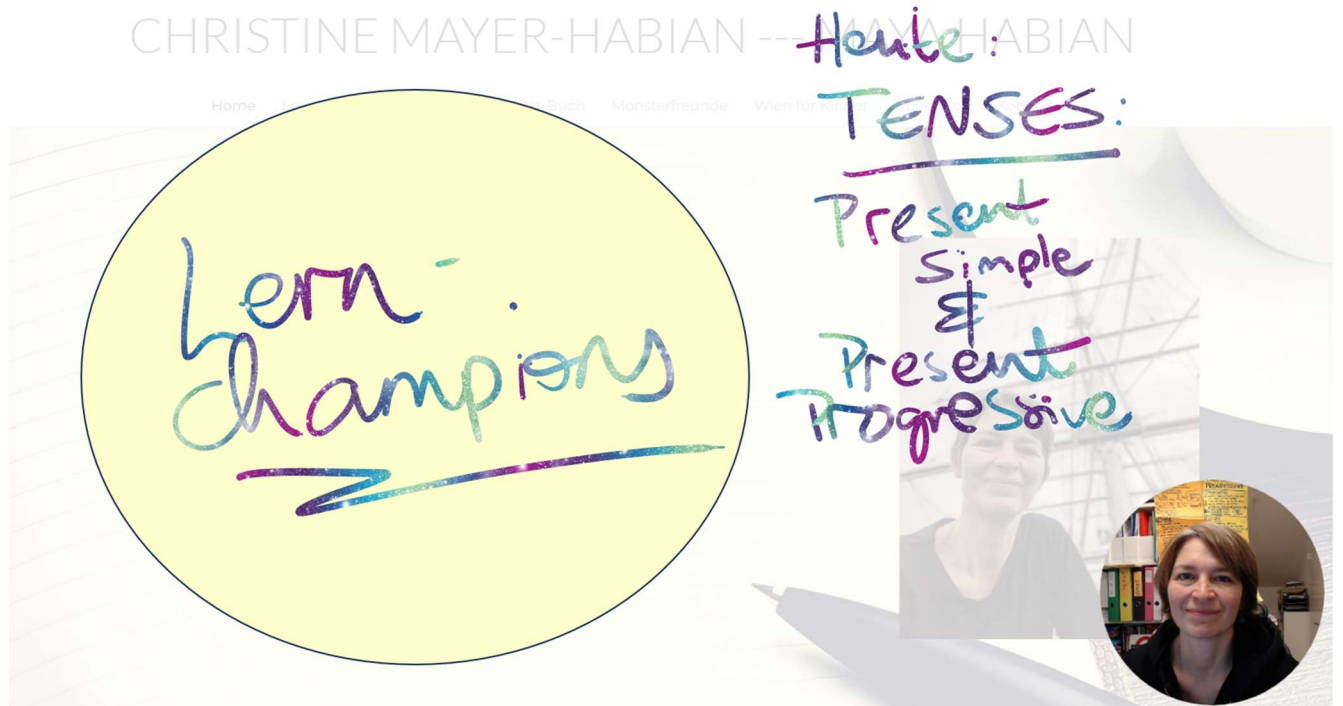 CHRISTINE MAYER-HABIAN --- MAYA HABIAN
Home
-Buch
Monsterfreunde
Wien für Kinder
Lern-
champions
Heute:
TENSES:
Present
simple
&
Present
Progressive